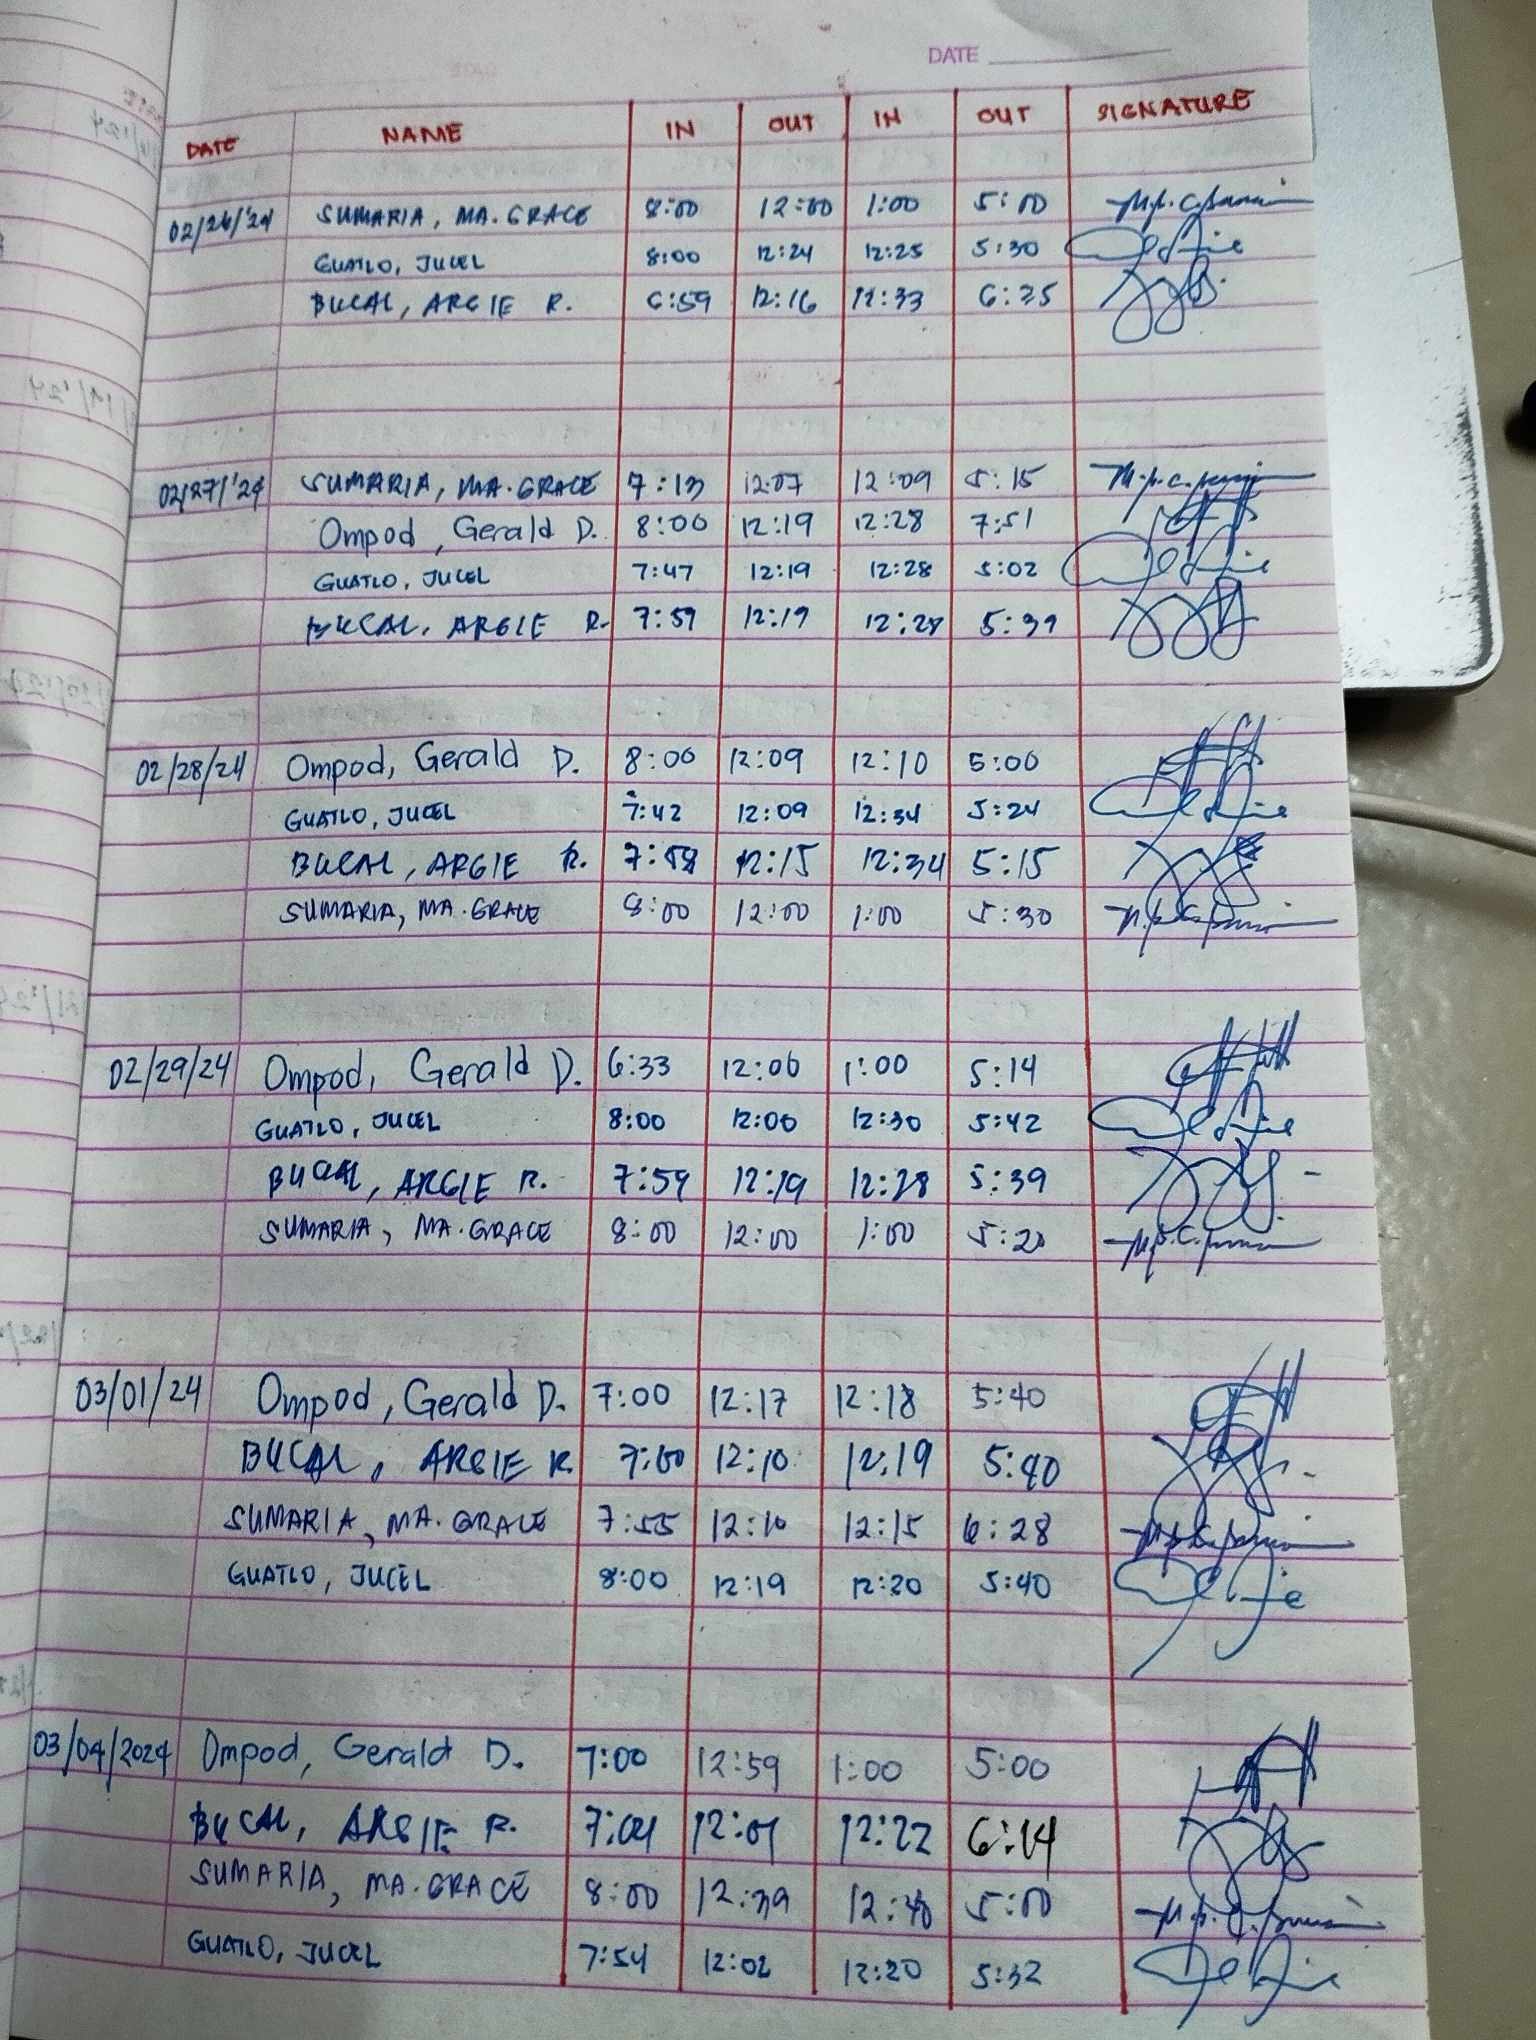 DATE
DATE NAME IN OUT IN OUT SIGNATURE
02/26/'24 SUMARIA, MA. GRACE 8:00 12:00 1:00 5:00
GUATLO, JUCEL 8:00 12:24 12:25 5:30
BUCAL, ARGIE R. 6:59 12:16 12:33 6:35
02/27/'24 SUMARIA, MA. GRACE 7:13 12:07 12:09 5:15
Ompod, Gerald D. 8:00 12:19 12:28 7:51
GUATLO, JUCEL 7:47 12:19 12:28 5:02
BUCAL, ARGIE R. 7:59 12:19 12:28 5:39
02/28/24 Ompod, Gerald D. 8:00 12:09 12:10 5:00
GUATLO, JUCEL 7:42 12:09 12:34 5:24
BUCAL, ARGIE R. 7:58 12:15 12:34 5:15
SUMARIA, MA. GRACE 8:00 12:00 1:00 5:30
02/29/24 Ompod, Gerald D. 6:33 12:00 1:00 5:14
GUATLO, JUCEL 8:00 12:00 12:30 5:42
BUCAL, ARGIE R. 7:59 12:19 12:28 5:39
SUMARIA, MA. GRACE 8:00 12:00 1:00 5:20
03/01/24 Ompod, Gerald D. 7:00 12:17 12:18 5:40
BUCAL, ARGIE R 7:00 12:10 12:19 5:40
SUMARIA, MA. GRACE 7:55 12:10 12:15 6:28
GUATLO, JUCEL 8:00 12:19 12:20 5:40
03/04/2024 Ompod, Gerald D. 7:00 12:59 1:00 5:00
BUCAL, ARGIE R. 7:04 12:01 12:22 6:14
SUMARIA, MA. GRACE 8:00 12:39 12:40 5:00
GUATLO, JUCEL 7:54 12:02 12:20 5:32